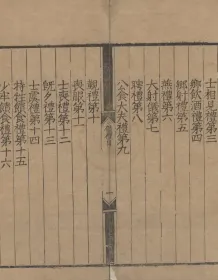 士相見禮第三
鄉飲酒禮第四
鄉射禮第五
燕禮第六
大射儀第七
聘禮第八
公食大夫禮第九
覲禮第十
喪服第十一
士喪禮第十二
既夕禮第十三
士虞禮第十四
特牲饋食禮第十五
少牢饋食禮第十六